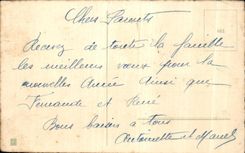 Chers Parents
Recevez de toute la famille
les meilleurs vœux pour la
nouvelle Année ainsi que
Fernande et René
Bons baisers à tous
Antoinette et Marcel